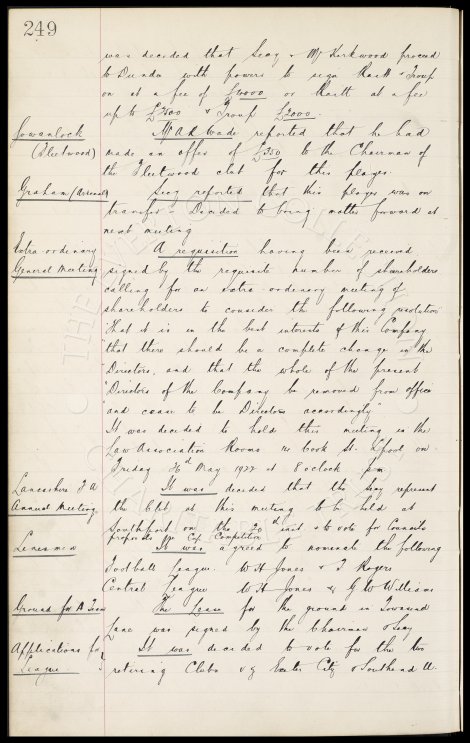 249
was decided that Secy & Mr Kirkwood proceed
to Dundee with powers to sign Raitt & Troup
on at a fee of £4000 or Raitt at a fee
up to £2500 & Troup £2000.
Gowanlock
(Fleetwood)
Mr A R Wade reported that he had
made an offer of £250 to the Chairman of
the Fleetwood club for this player
Graham (Arsenal)
Secy reported that this player was on
transfer - Decided to bring matter forward at
next meeting
Extra-ordinary
General Meeting
A requisition having been received
signed by the requisite number of shareholders
calling for an extra-ordinary meeting of
shareholders to consider the following resolution
"That it is in the best interests of this Company
"that there should be a complete change in the
"Directors, and that the whole of the present
"Directors of the Company be removed from office
and cease to be Directors accordingly"
It was decided to hold this meeting in the
Law Association Rooms 14 Cook St. L'pool on
Friday May 1922 at 8 oclock pm
Lancashire F A
Annual Meeting
It was decided that the Secy represent
the Club at this meeting to be held at
Southport on the 20th inst & to vote for Councils
proposals re Cup Competition
It was agreed to nominate the following
Football League. W H Jones & T Rogers
Central League W H Jones & G W Williams
Ground for A Team
The Lease for the ground in Townsend
Lane was signed by the Chairman & Secy
Applications for
League
It was decided to vote for the two
retiring Clubs viz Exeter City & Southend U.